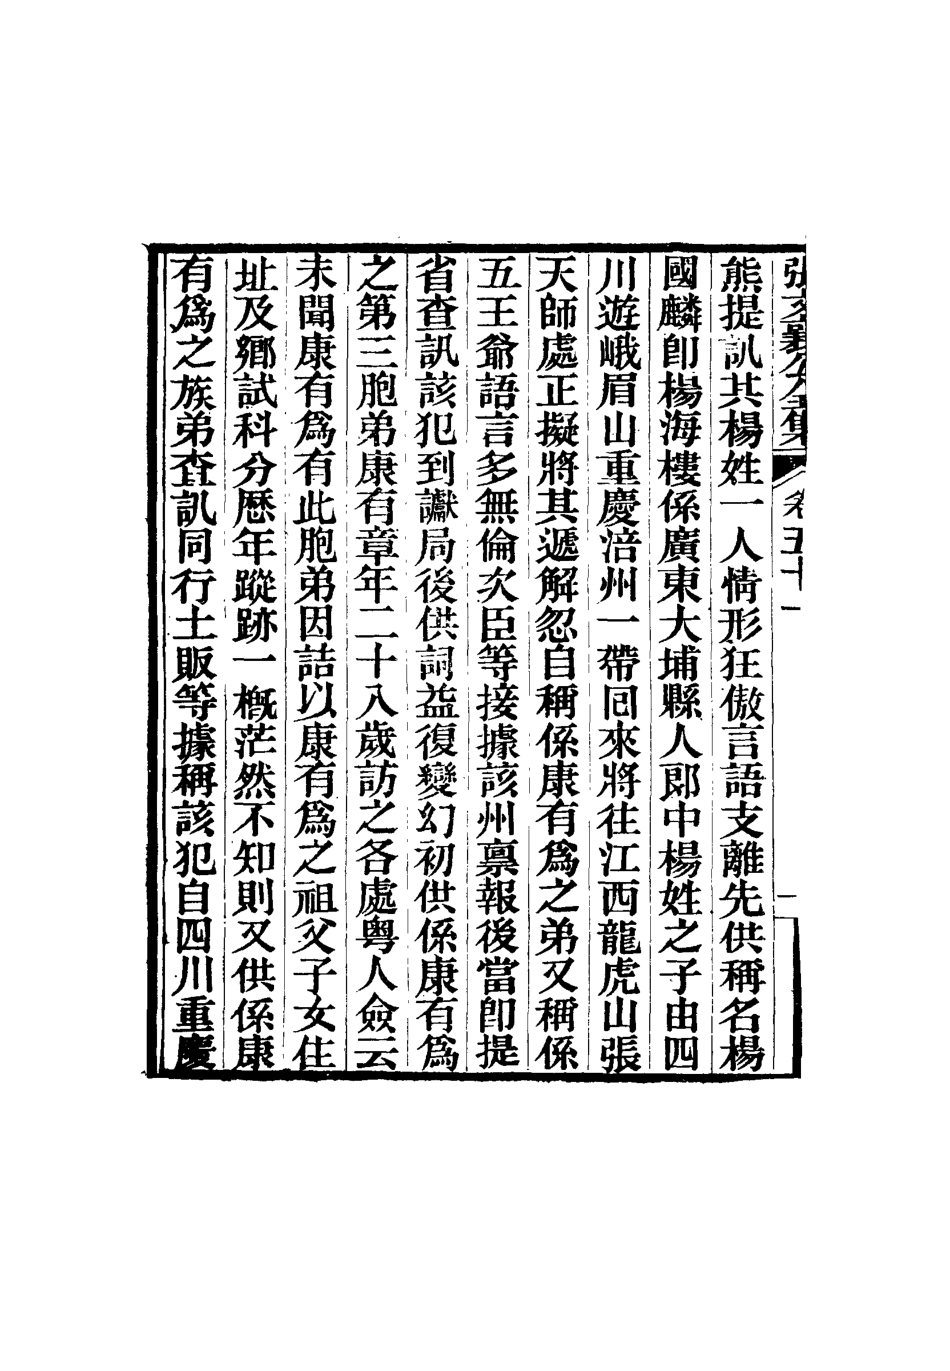 張文襄公全集 卷五十一 一
熊提訊其楊姓一人情形狂傲言語支離先供稱名楊
國麟卽楊海樓係廣東大埔縣人郎中楊姓之子由四
川遊峨眉山重慶涪州一帶囘來將往江西龍虎山張
天師處正擬將其遞解忽自稱係康有爲之弟又稱係
五王爺語言多無倫次臣等接據該州禀報後當卽提
省查訊該犯到讞局後供詞益復變幻初供係康有爲
之第三胞弟康有章年二十八歲訪之各處粤人僉云
未聞康有爲有此胞弟因詰以康有爲之祖父子女住
址及鄕試科分歷年蹤跡一槪茫然不知則又供係康
有爲之族弟查訊同行土販等據稱該犯自四川重慶